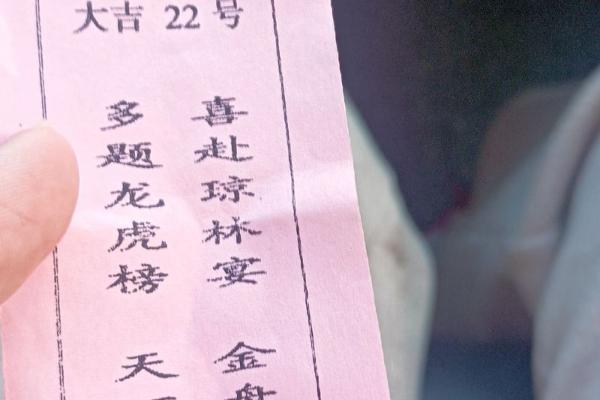 大吉 22 号
喜赴琼林宴
多题龙虎榜
金盘
天